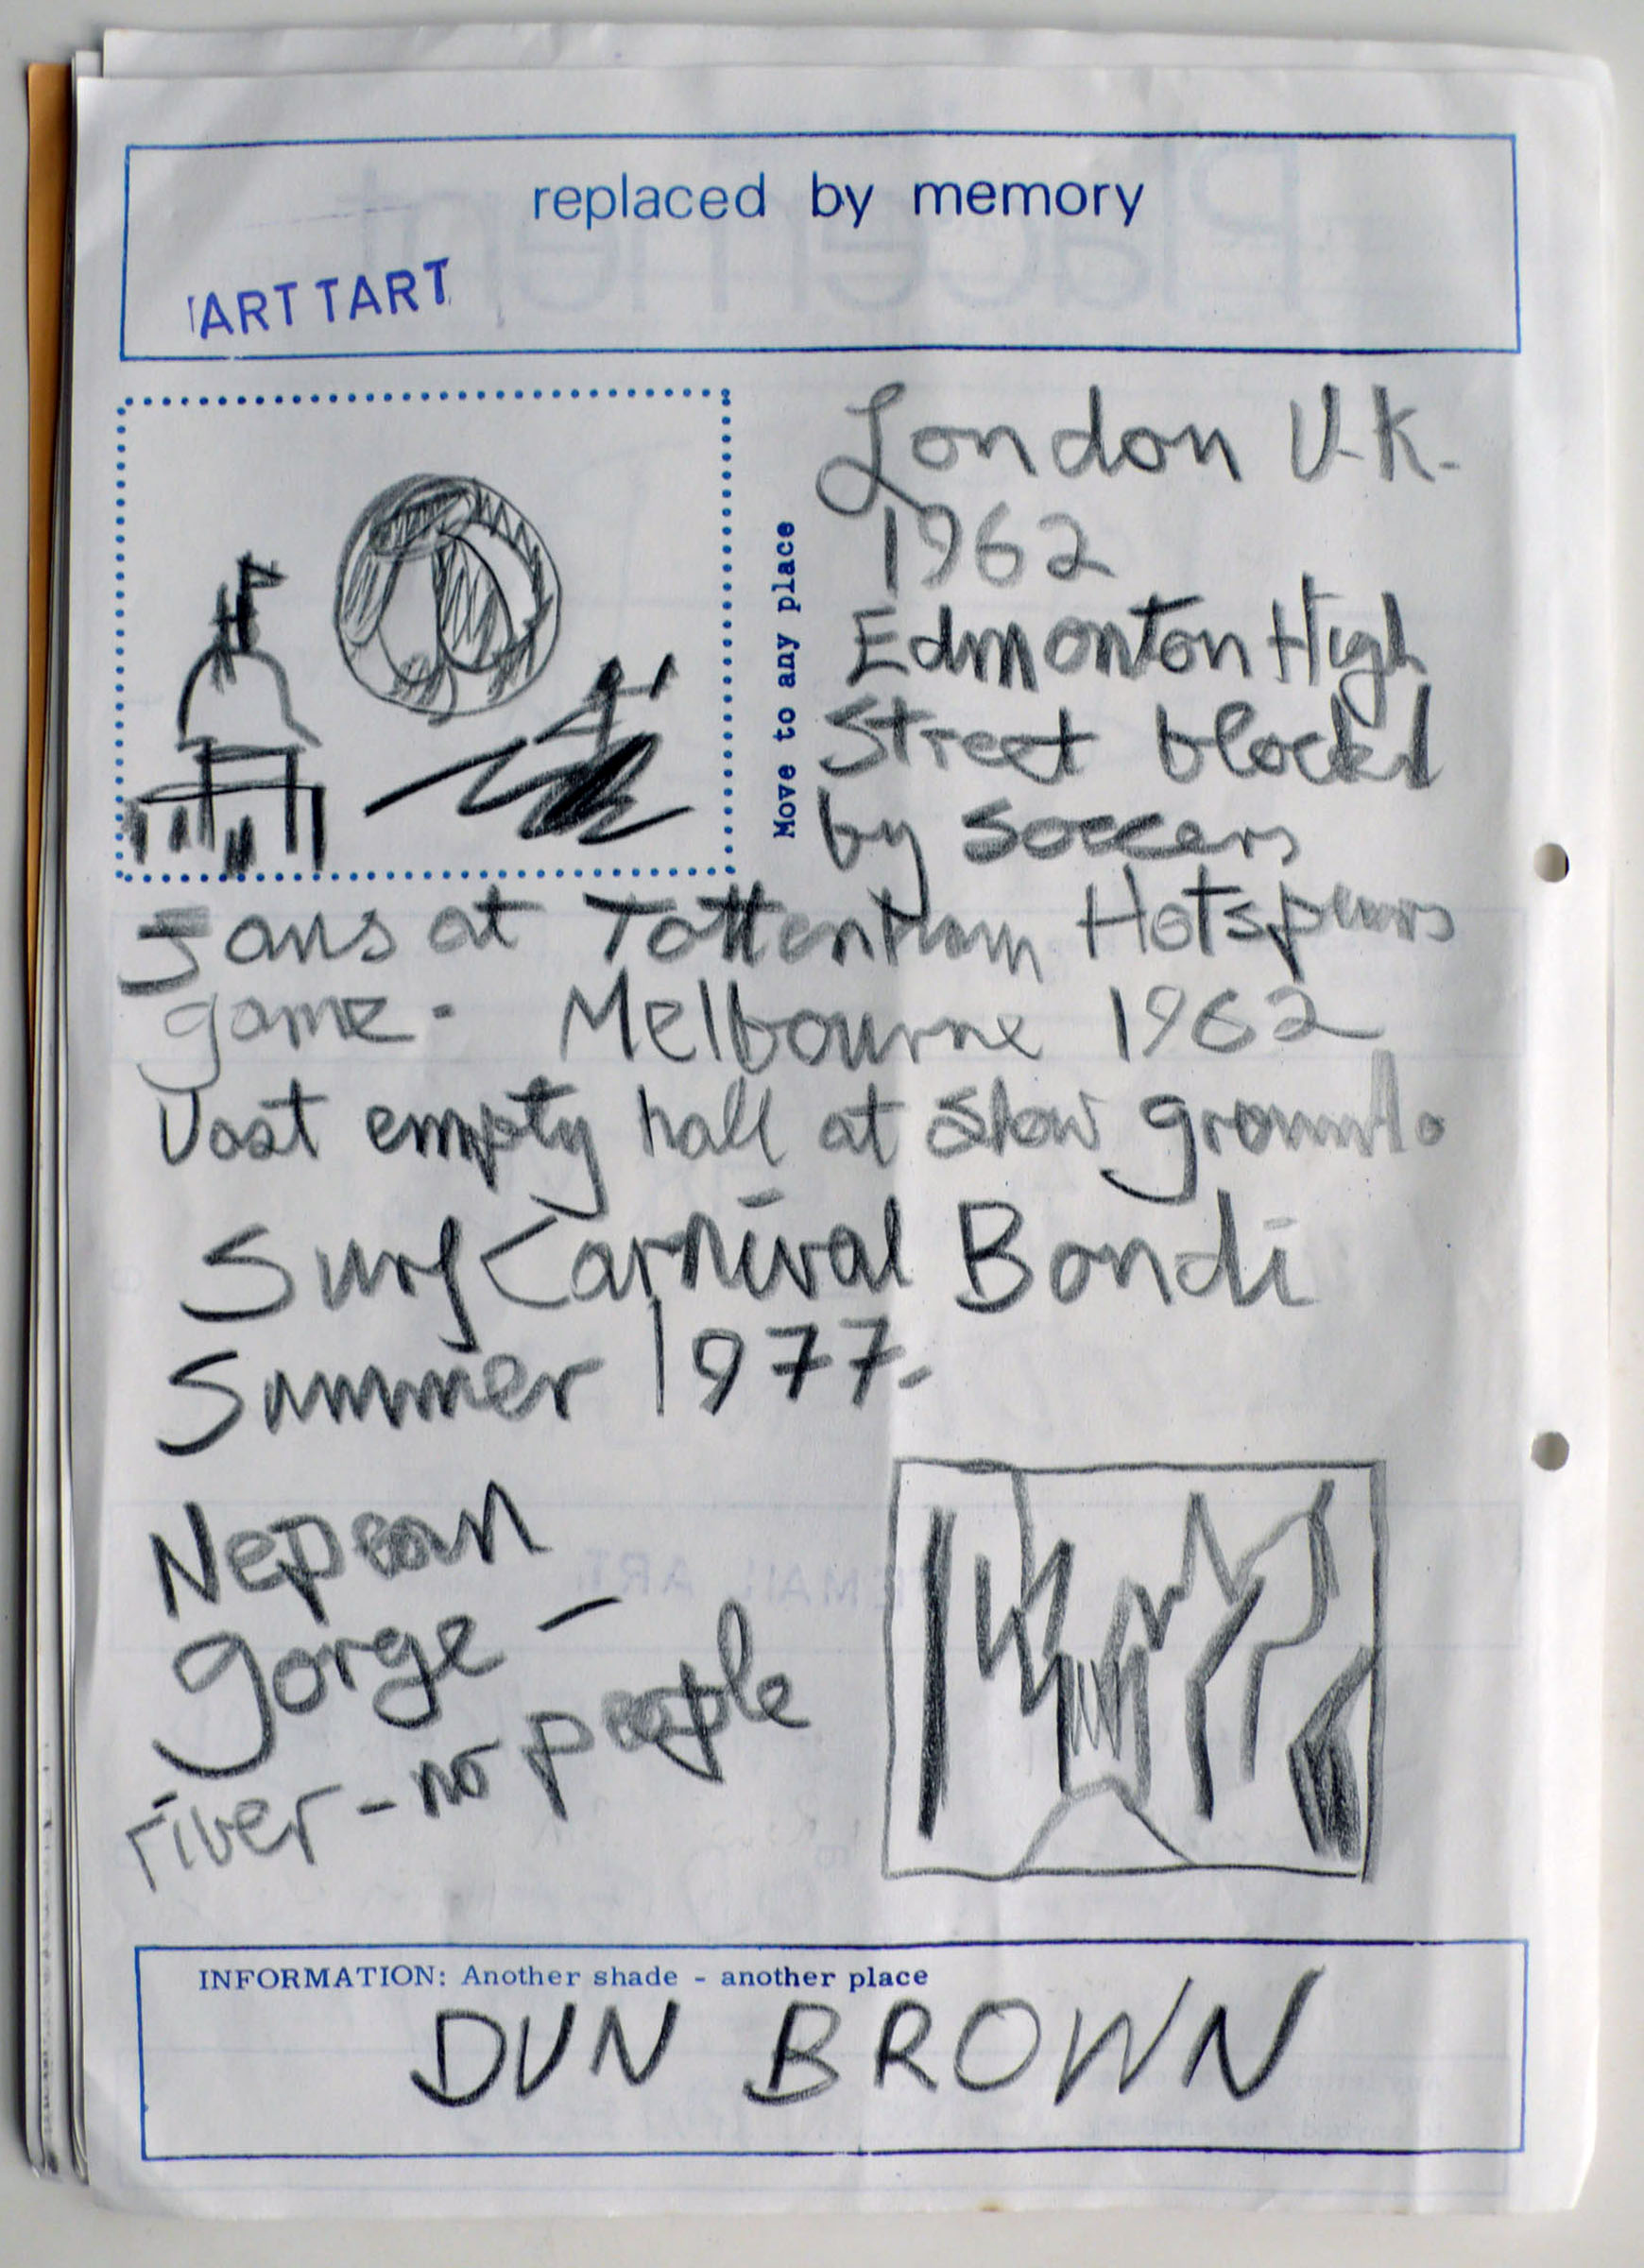 replaced by memory
ART TART
Move to any place
London U.K.
1962
Edmonton High
Street blocked
by Soccers
fans at Tottenham Hotspurs
game. Melbourne 1962
Vast empty hall at show grounds
Surf Carnival Bondi
Summer 1977.
Nepean
gorge -
river - no people
INFORMATION: Another shade - another place
DUN BROWN